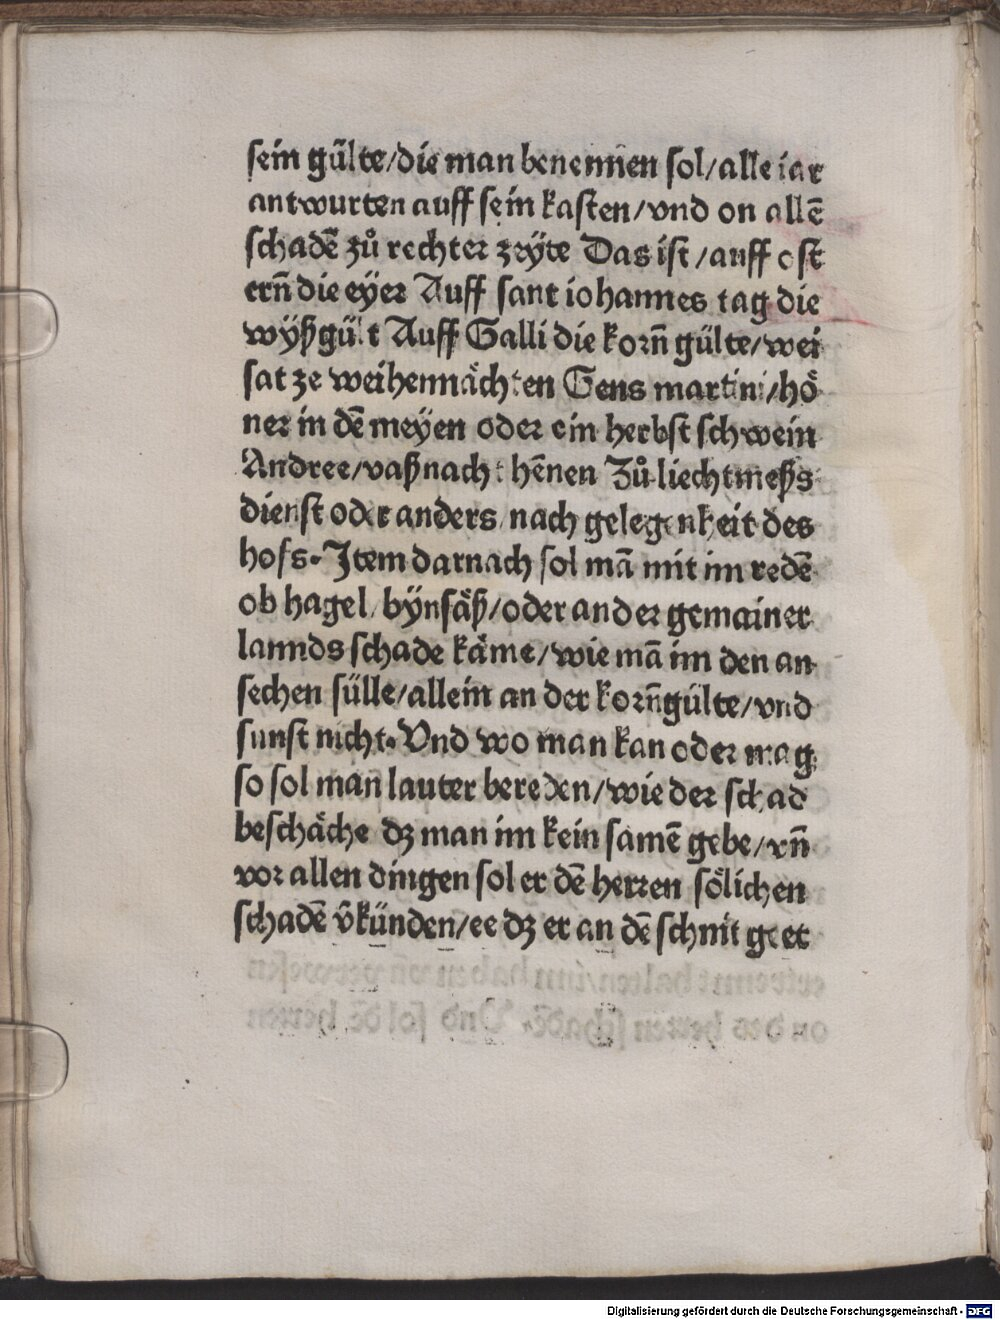 sein gülte/die man benennen sol/alle iar
antwurten auff sein kasten/vnd on allē
schadē zů rechter zeÿte Das ist/auff ost
ern̄ die eÿer Auff sant iohannes tag die
wÿßgült Auff Galli die korn̄ gülte/wei
sat ze weihennächten Gens martini/hö
ner in dē meÿen oder ein herbst schwein
Andree/vaßnacht hēnen Zů liechtmeßs
dienst oder anders nach gelegenheit des
hofs. Item darnach sol mā mit im redē
ob hagel/bÿnsäß/oder ander gemainer
lannds schade käme/wie mā im den an
sechen sülle/allein an der korn̄gülte/vnd
sunst nicht. Vnd wo man kan oder mag
so sol man lauter bereden/wie der schad
beschäche dz man im kein samē gebe/vn̄
vor allen dingen sol er dē herren sölichen
schadē v̄künden/ee dz er an dē schnit geet
Digitalisierung gefördert durch die Deutsche Forschungsgemeinschaft - DFG